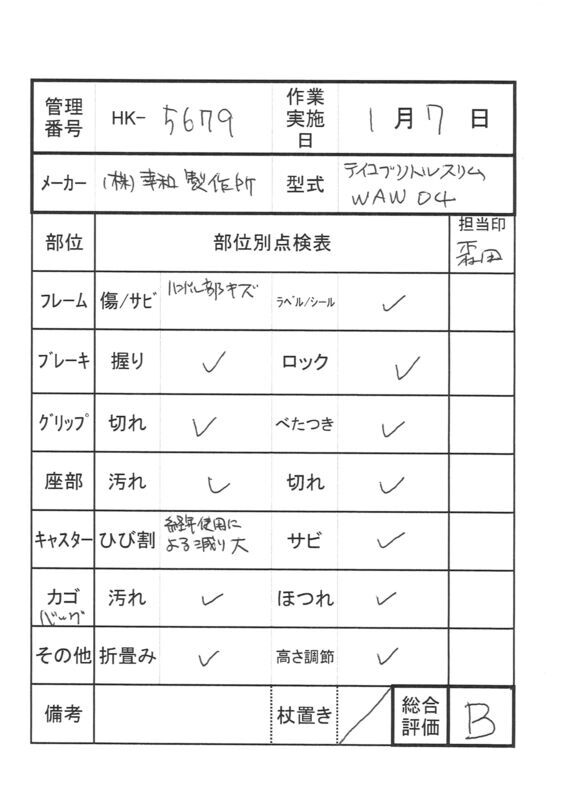 管理番号 HK- 5679 作業実施日 1月7日
メーカー (株)幸和製作所 型式 テイコブリトルスリム WAW04
部位 部位別点検表 担当印 森田
フレーム 傷/サビ ハンドル部キズ ラベル/シール ✓
ブレーキ 握り ✓ ロック ✓
グリップ 切れ ✓ べたつき ✓
座部 汚れ ✓ 切れ ✓
キャスター ひび割 経年使用による減り大 サビ ✓
カゴ バッグ 汚れ ✓ ほつれ ✓
その他 折畳み ✓ 高さ調節 ✓
備考 杖置き ／ 総合評価 B